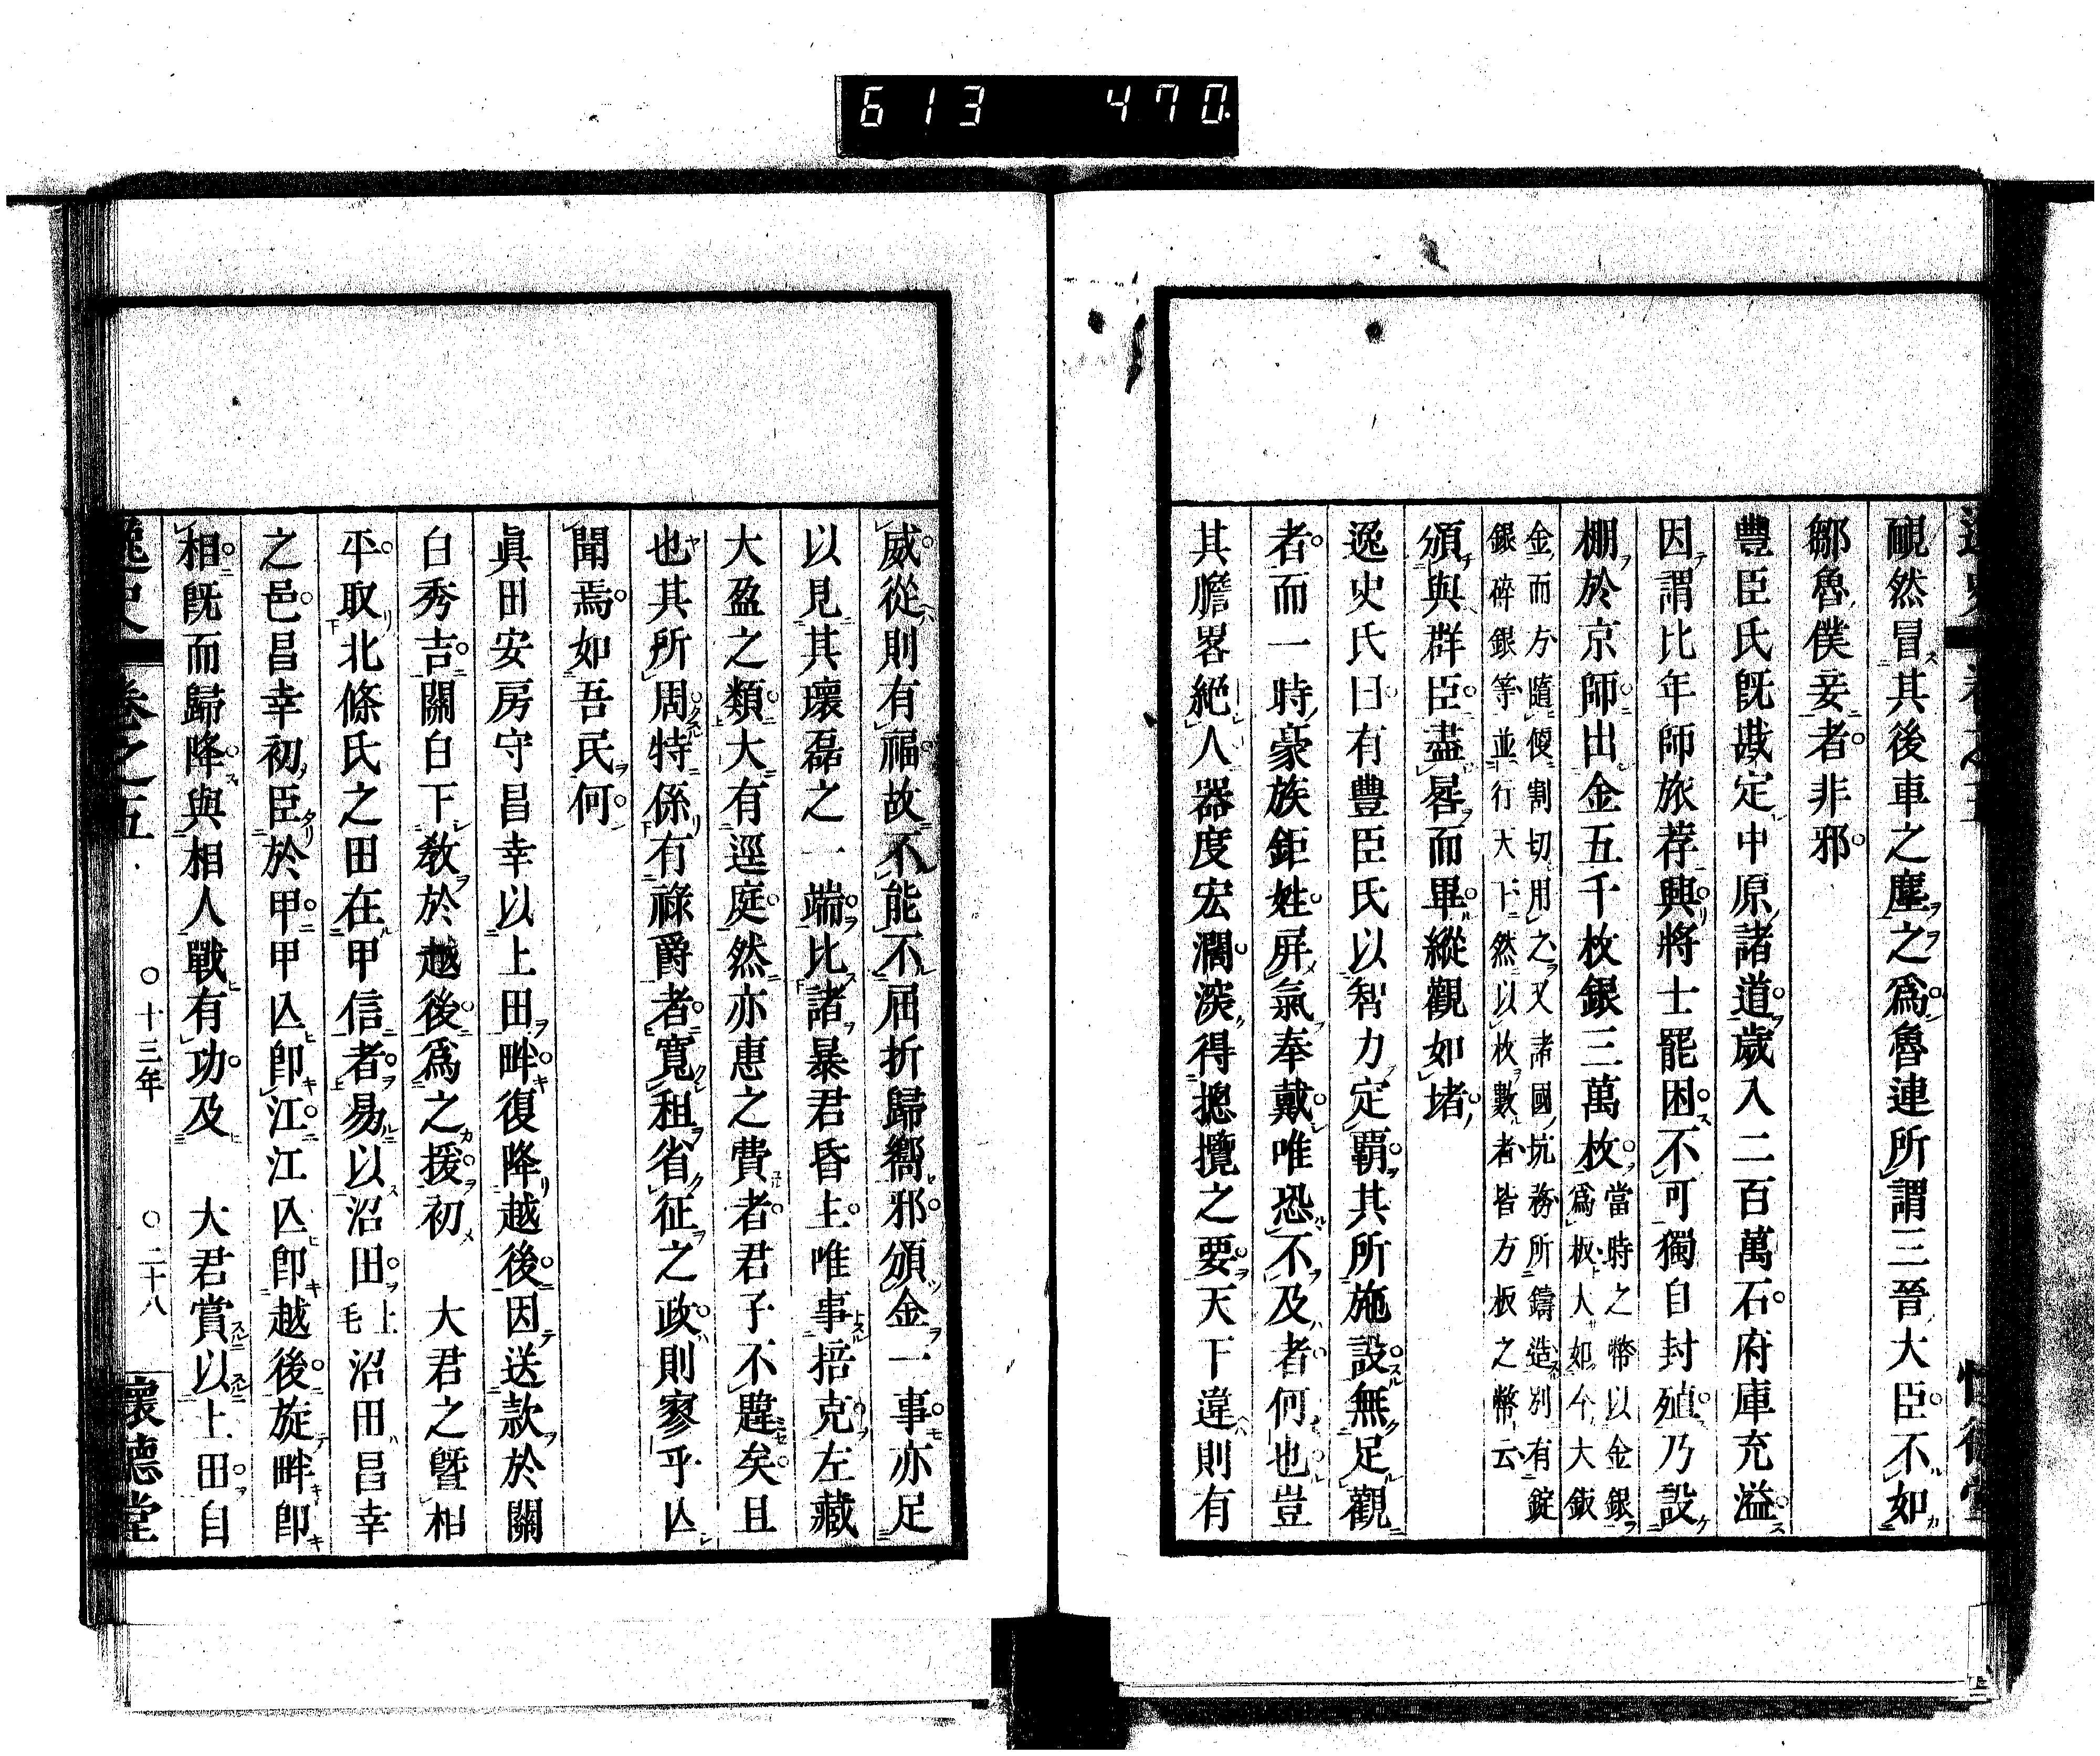 613 470
靦然冒其後車之塵之爲魯連所謂三晉大臣不如
鄒魯僕妾者非邪
豐臣氏既戡定中原諸道歲入二百萬石府庫充溢
因謂比年師旅荐興將士罷困不可獨自封殖乃設
棚於京師出金五千枚銀三萬枚
當時之幣以金銀爲板大如今大鈑
金而方隨傾割切用之又諸國坑務所鑄造別有錠
銀碎銀等並行大下然以枚數者皆方板之幣云
頒與群臣盡晷而畢縱觀如堵
逸史氏曰有豐臣氏以智力定覇其所施設無足觀
者而一時豪族鉅姓屏氣奉戴唯恐不及者何也豈
其膽畧絕人器度宏濶深得摠攬之要天下違則有
威從則有福故不能不屈折歸嚮邪頒金一事亦足
以見其壞磊之一端比諸暴君昏主唯事掊克左藏
大盈之類大有逕庭然亦惠之費者君子不韙矣且
也其所周特係有祿爵者寬租省征之政則寥乎亾
聞焉如吾民何
眞田安房守昌幸以上田畔復降越後因送款於關
白秀吉關白下敎於越後爲之援初 大君之曁相
平取北條氏之田在甲信者易以沼田上毛沼田昌幸
之邑昌幸初臣於甲甲亾卽江江亾卽越後旋畔卽
相既而歸降與相人戰有功及 大君賞以上田自
逸史 卷之五 ○十三年 ○二十八 懷德堂